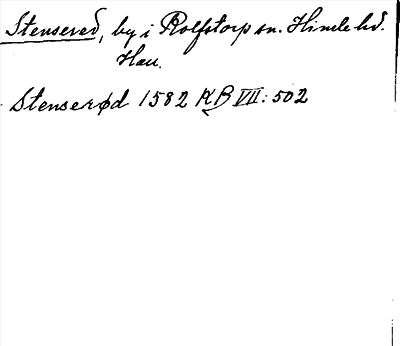 Stensered, by i Rolfstorp sn. Himle hd.
Hall.
Stenserød 1582 KB VII: 502